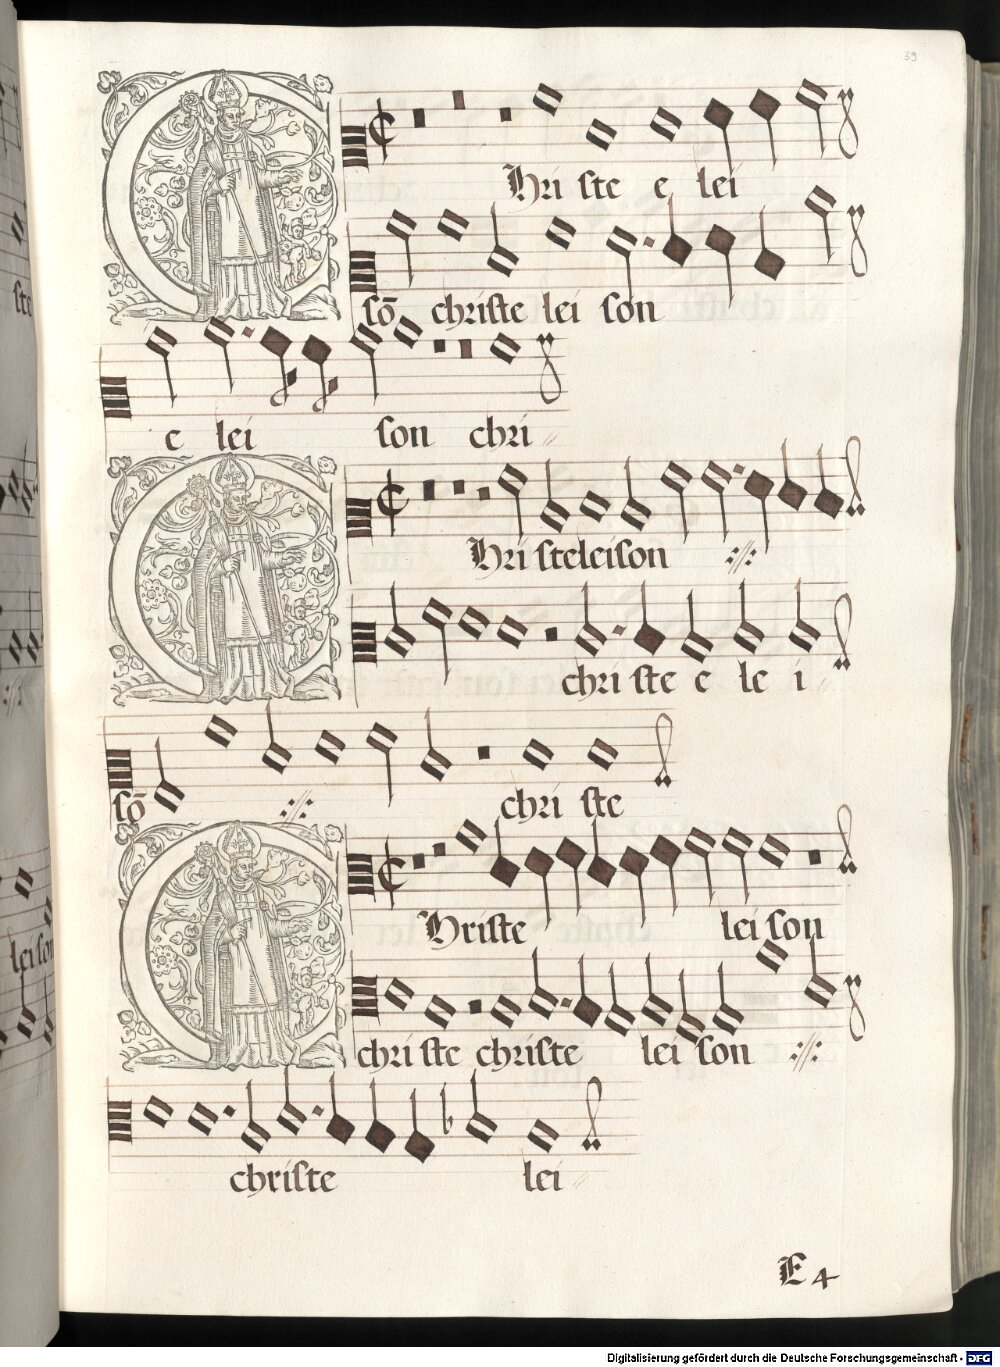 39
Christe e lei
sō christe lei son
e lei son chri
Christeleison
christe e le i
sō christe
Christe lei son
christe christe lei son
christe lei
E 4
ste
leison
Digitalisierung gefördert durch die Deutsche Forschungsgemeinschaft - DFG